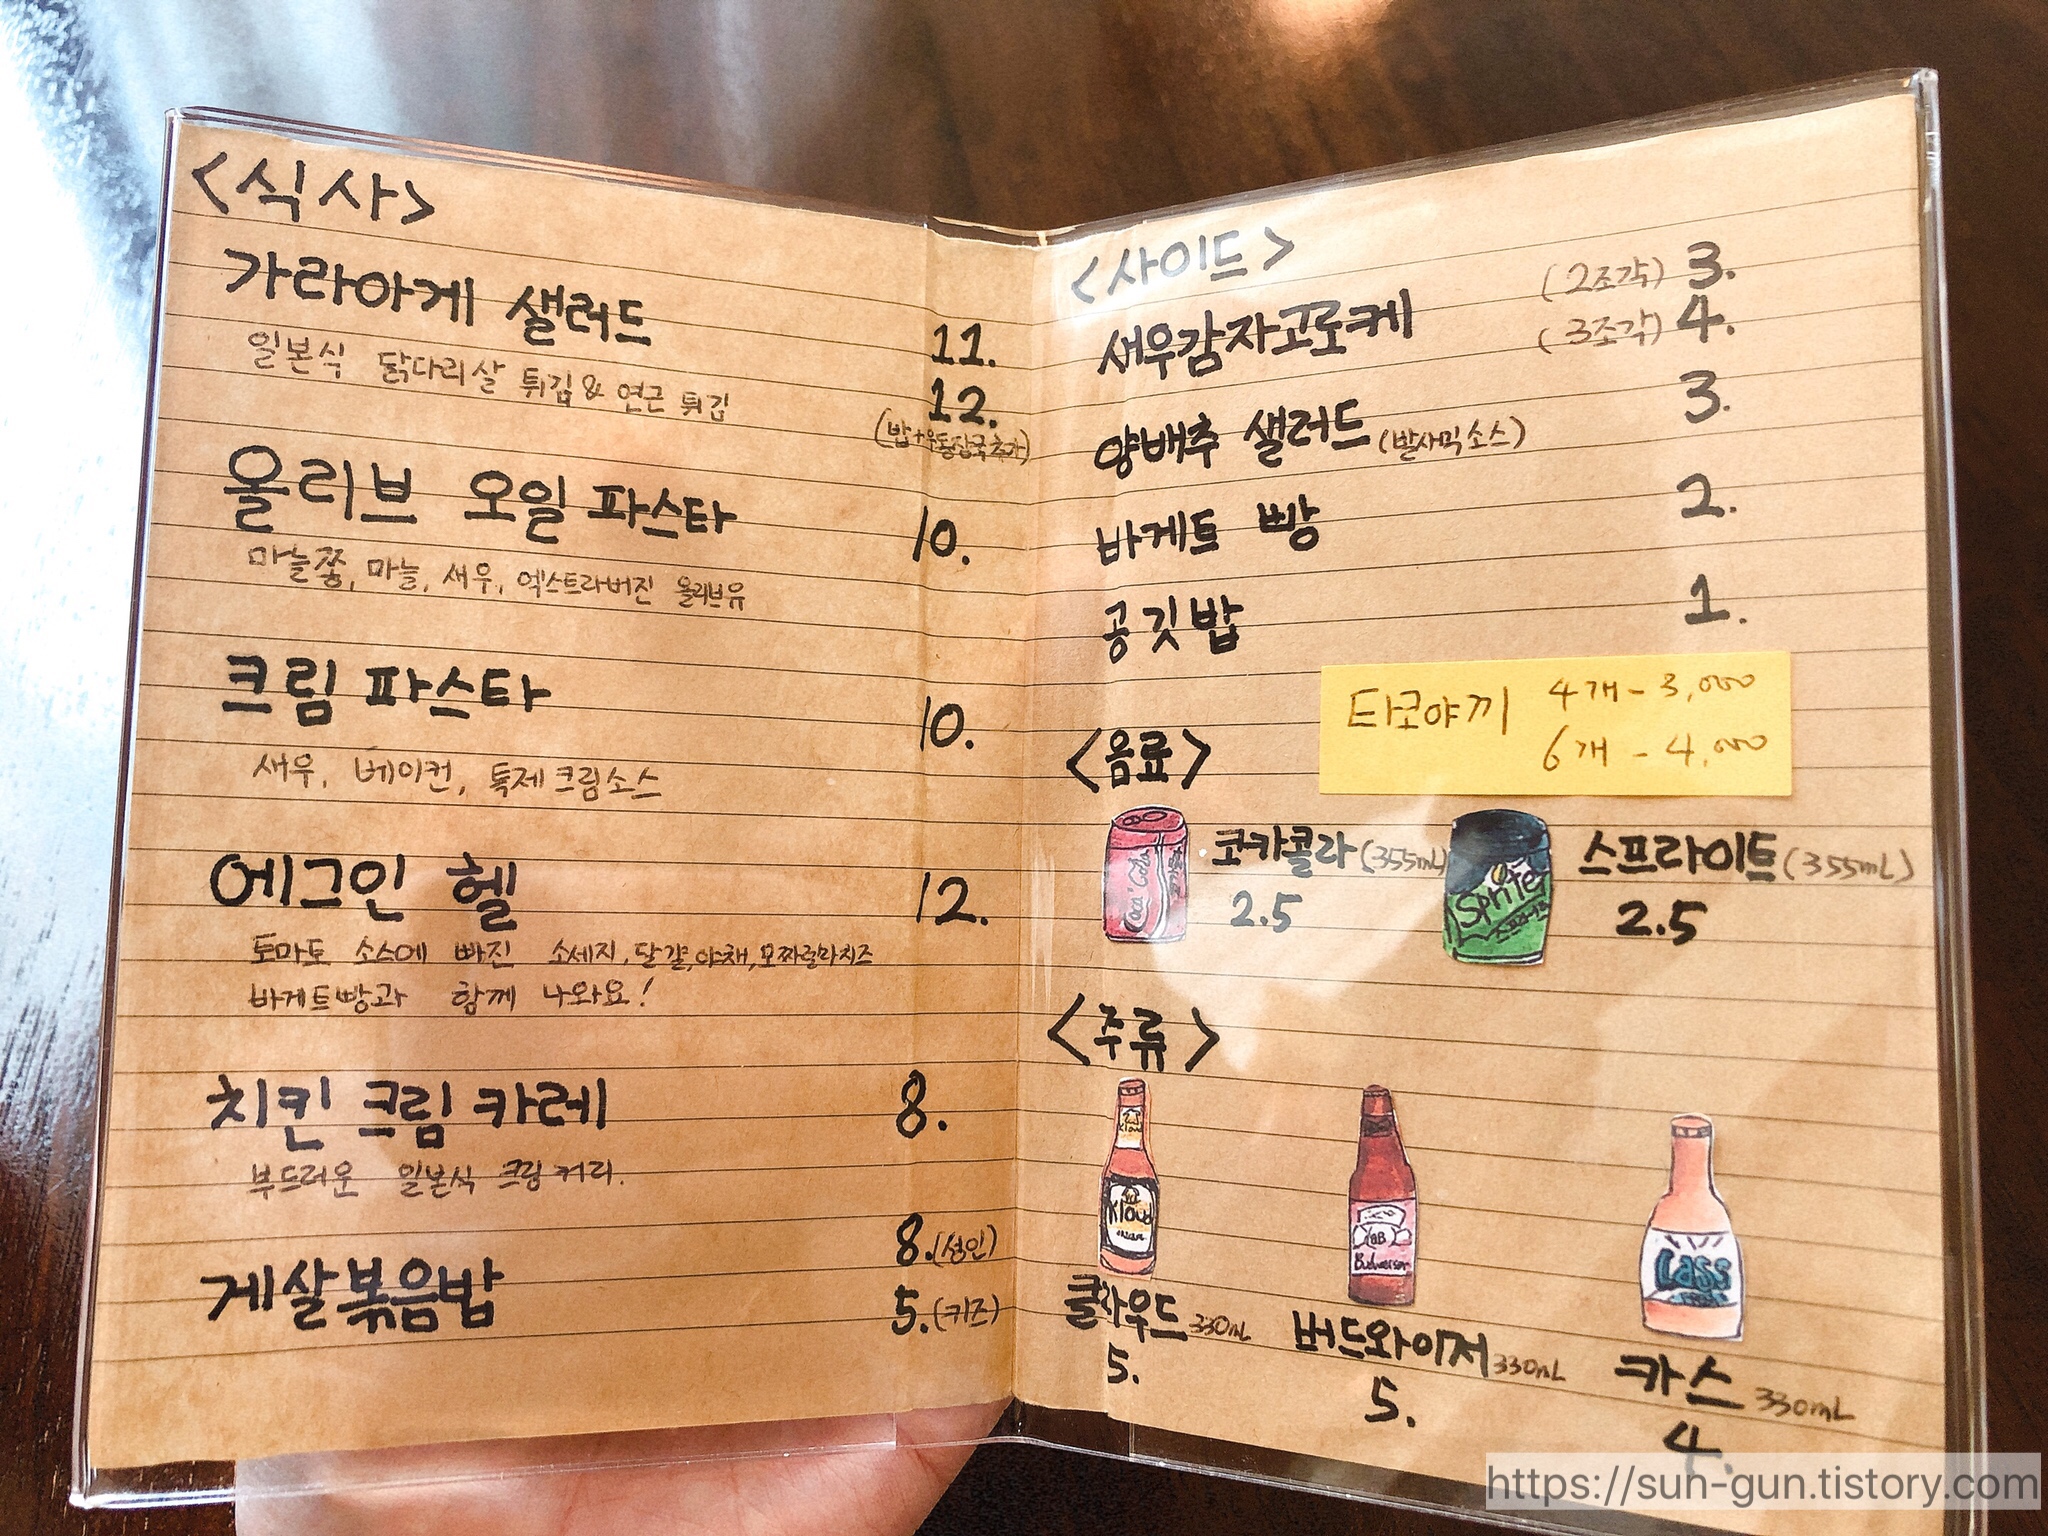 <식사>
가라아게 샐러드
11.
일본식 닭다리살 튀김 & 연근 튀김
12.
(밥+우동장국 추가)
올리브 오일 파스타
10.
마늘쫑, 마늘, 새우, 엑스트라버진 올리브유
크림 파스타
10.
새우, 베이컨, 특제 크림소스
에그인 헬
12.
토마토 소스에 빠진 소세지, 달걀, 야채, 모짜렐라치즈
바게트빵과 함께 나와요!
치킨 크림 카레
8.
부드러운 일본식 크림 커리.
게살볶음밥
8. (성인)
5. (키즈)
<사이드>
새우감자고로케
(2조각) 3.
(3조각) 4.
양배추 샐러드 (발사믹소스)
3.
바게트 빵
2.
공깃밥
1.
타코야끼 4개 - 3,000
6개 - 4,000
<음료>
Coca Cola
코카콜라 (355mL)
2.5
Sprite
스프라이트
스프라이트 (355mL)
2.5
<주류>
Kloud
Kloud
클라우드 330mL
5.
Budweiser
버드와이저 330mL
5.
Cass
카스 330mL
4.
https://sun-gun.tistory.com